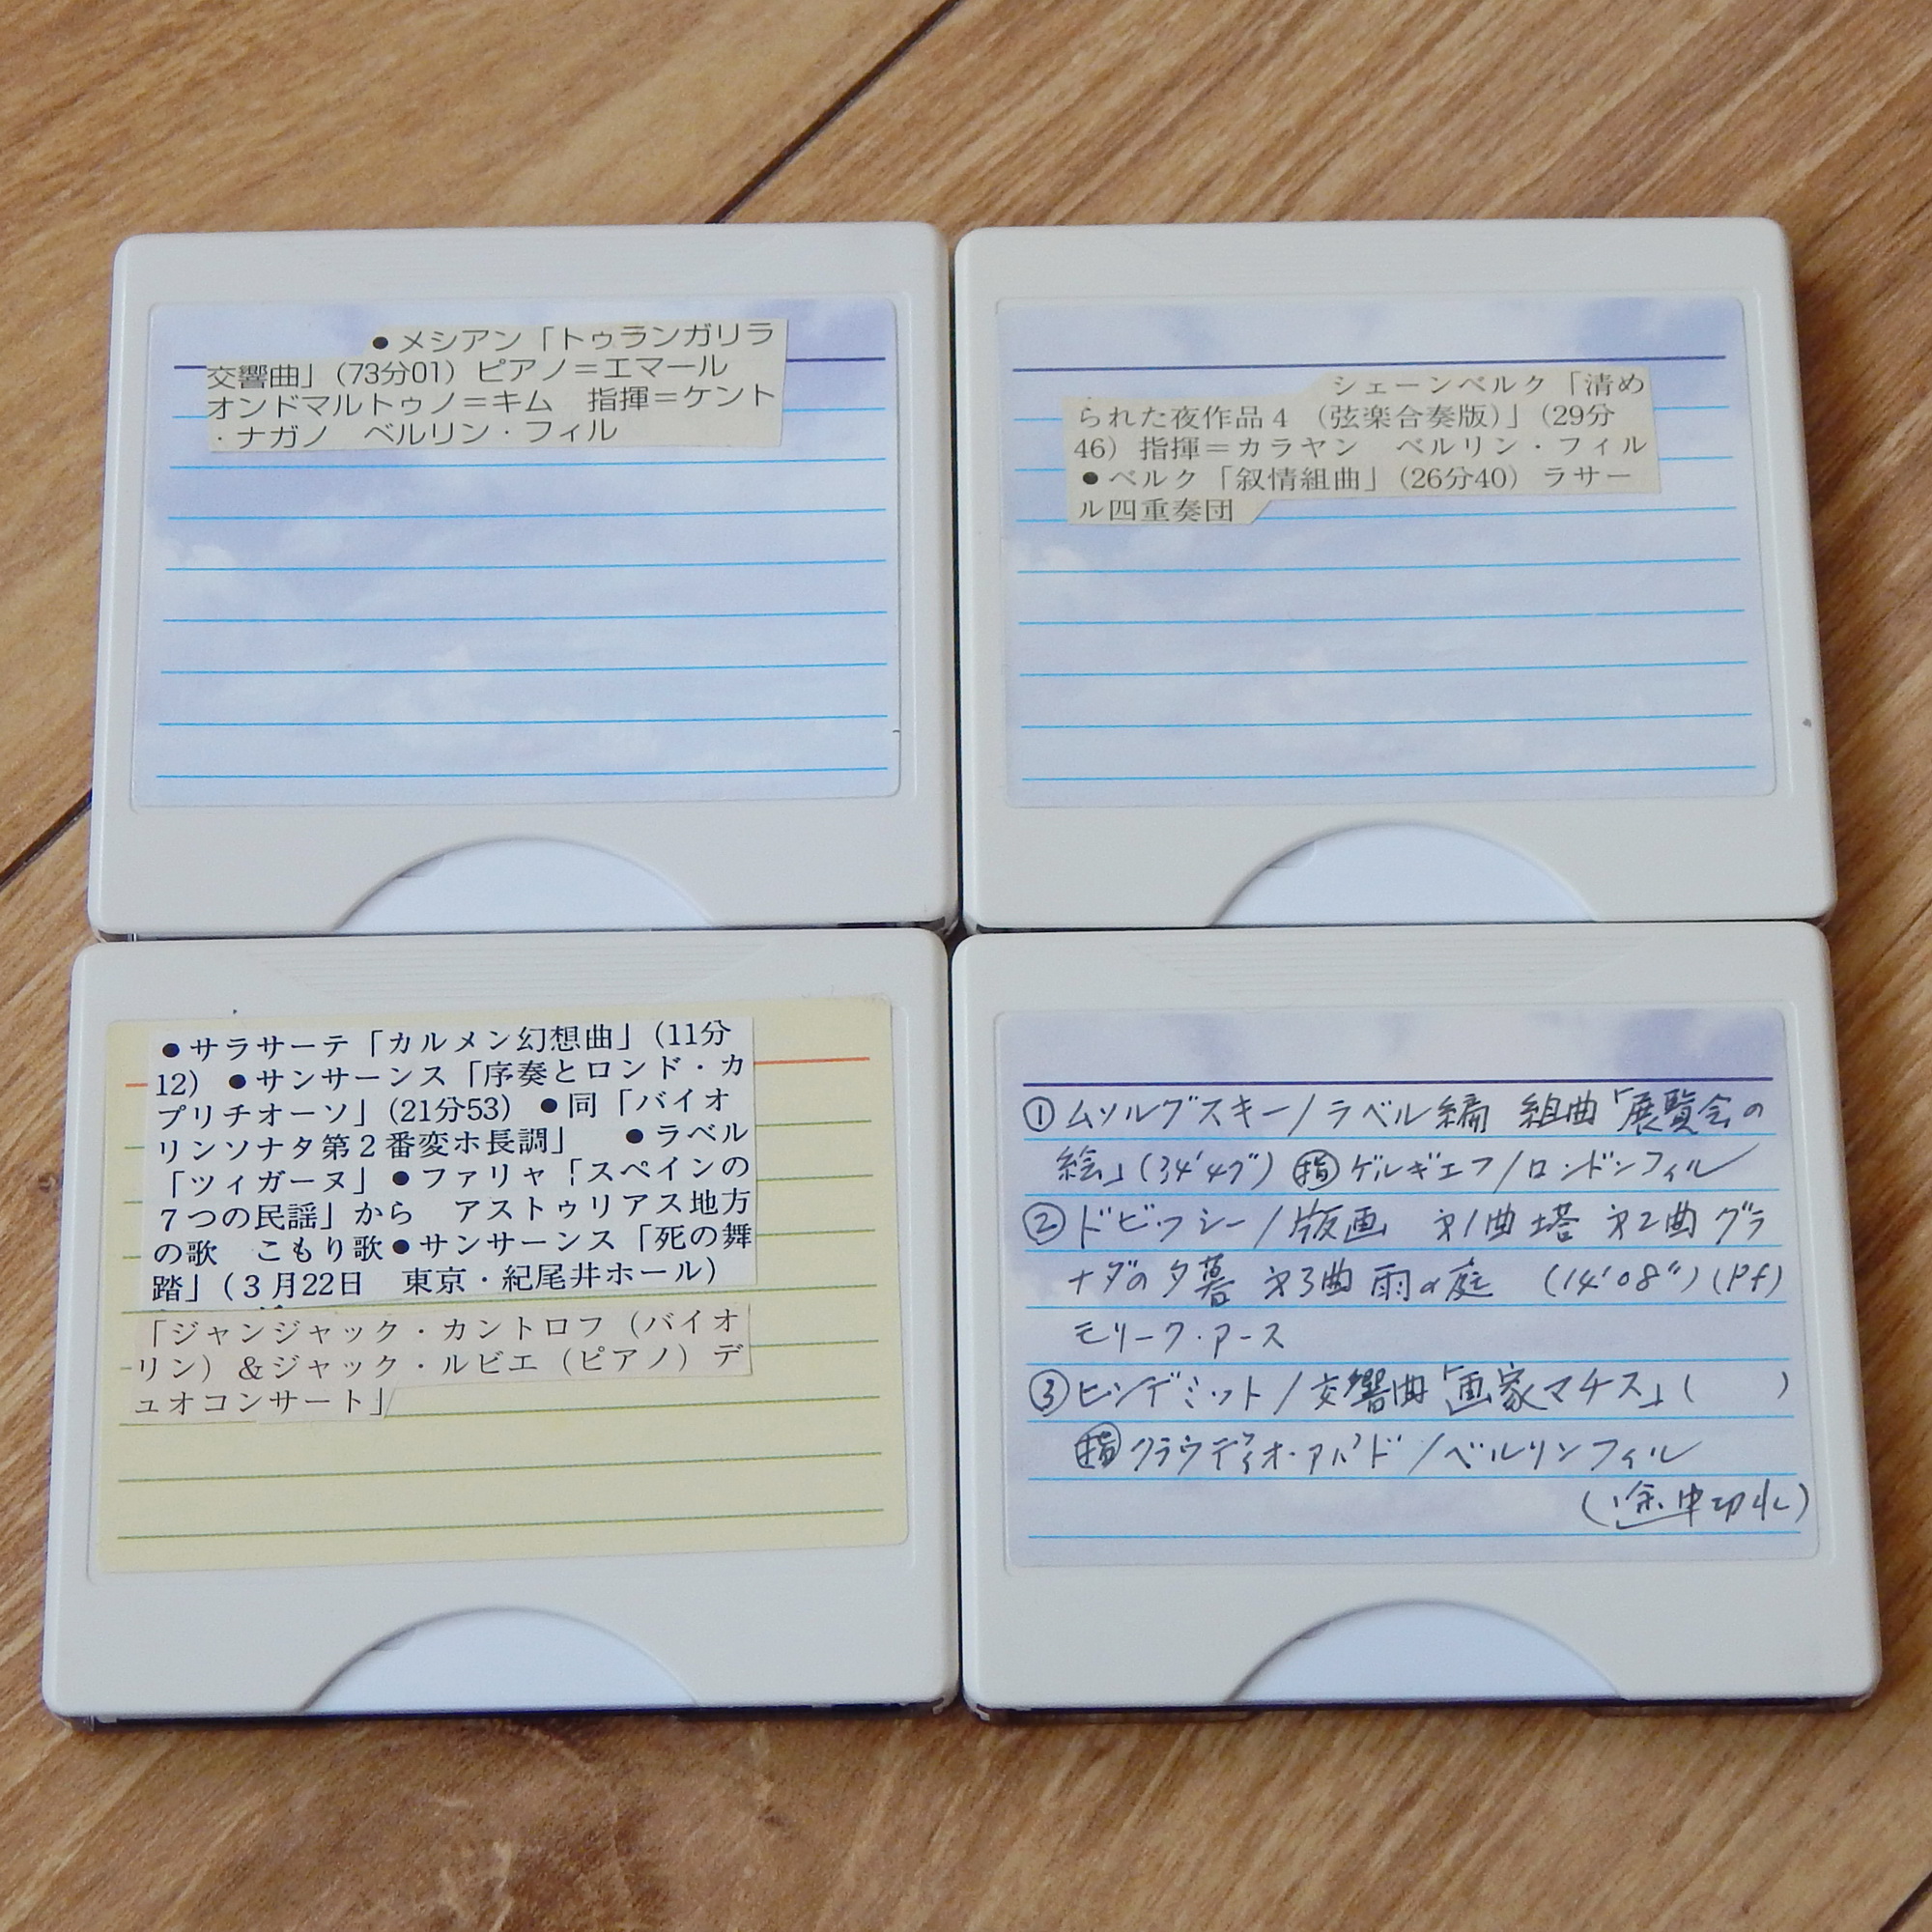 ●メシアン「トゥランガリラ
交響曲」（73分01）ピアノ＝エマール
オンドマルトゥノ＝キム　指揮＝ケント
・ナガノ　ベルリン・フィル
シェーンベルク「清め
られた夜作品４（弦楽合奏版）」（29分
46）指揮＝カラヤン　ベルリン・フィル
●ベルク「叙情組曲」（26分40）ラサー
ル四重奏団
●サラサーテ「カルメン幻想曲」（11分
12）●サンサーンス「序奏とロンド・カ
プリチオーソ」（21分53）●同「バイオ
リンソナタ第２番変ホ長調」　●ラベル
「ツィガーヌ」●ファリャ「スペインの
７つの民謡」から　アストゥリアス地方
の歌　こもり歌●サンサーンス「死の舞
踏」（３月22日　東京・紀尾井ホール）
「ジャンジャック・カントロフ（バイオ
リン）＆ジャック・ルビエ（ピアノ）デ
ュオコンサート」
①ムソルグスキー/ラベル編 組曲「展覧会の
絵」(34'47") ㊟ゲルギエフ/ロンドンフィル
②ドビッシー/版画 第1曲塔 第2曲グラ
ナダの夕暮 第3曲雨の庭 (14'08") (Pf)
モリーク・アース
③ヒンデミット/交響曲「画家マチス」(　　)
指 クラウディオ・アバド/ベルリンフィル
(途中切れ)